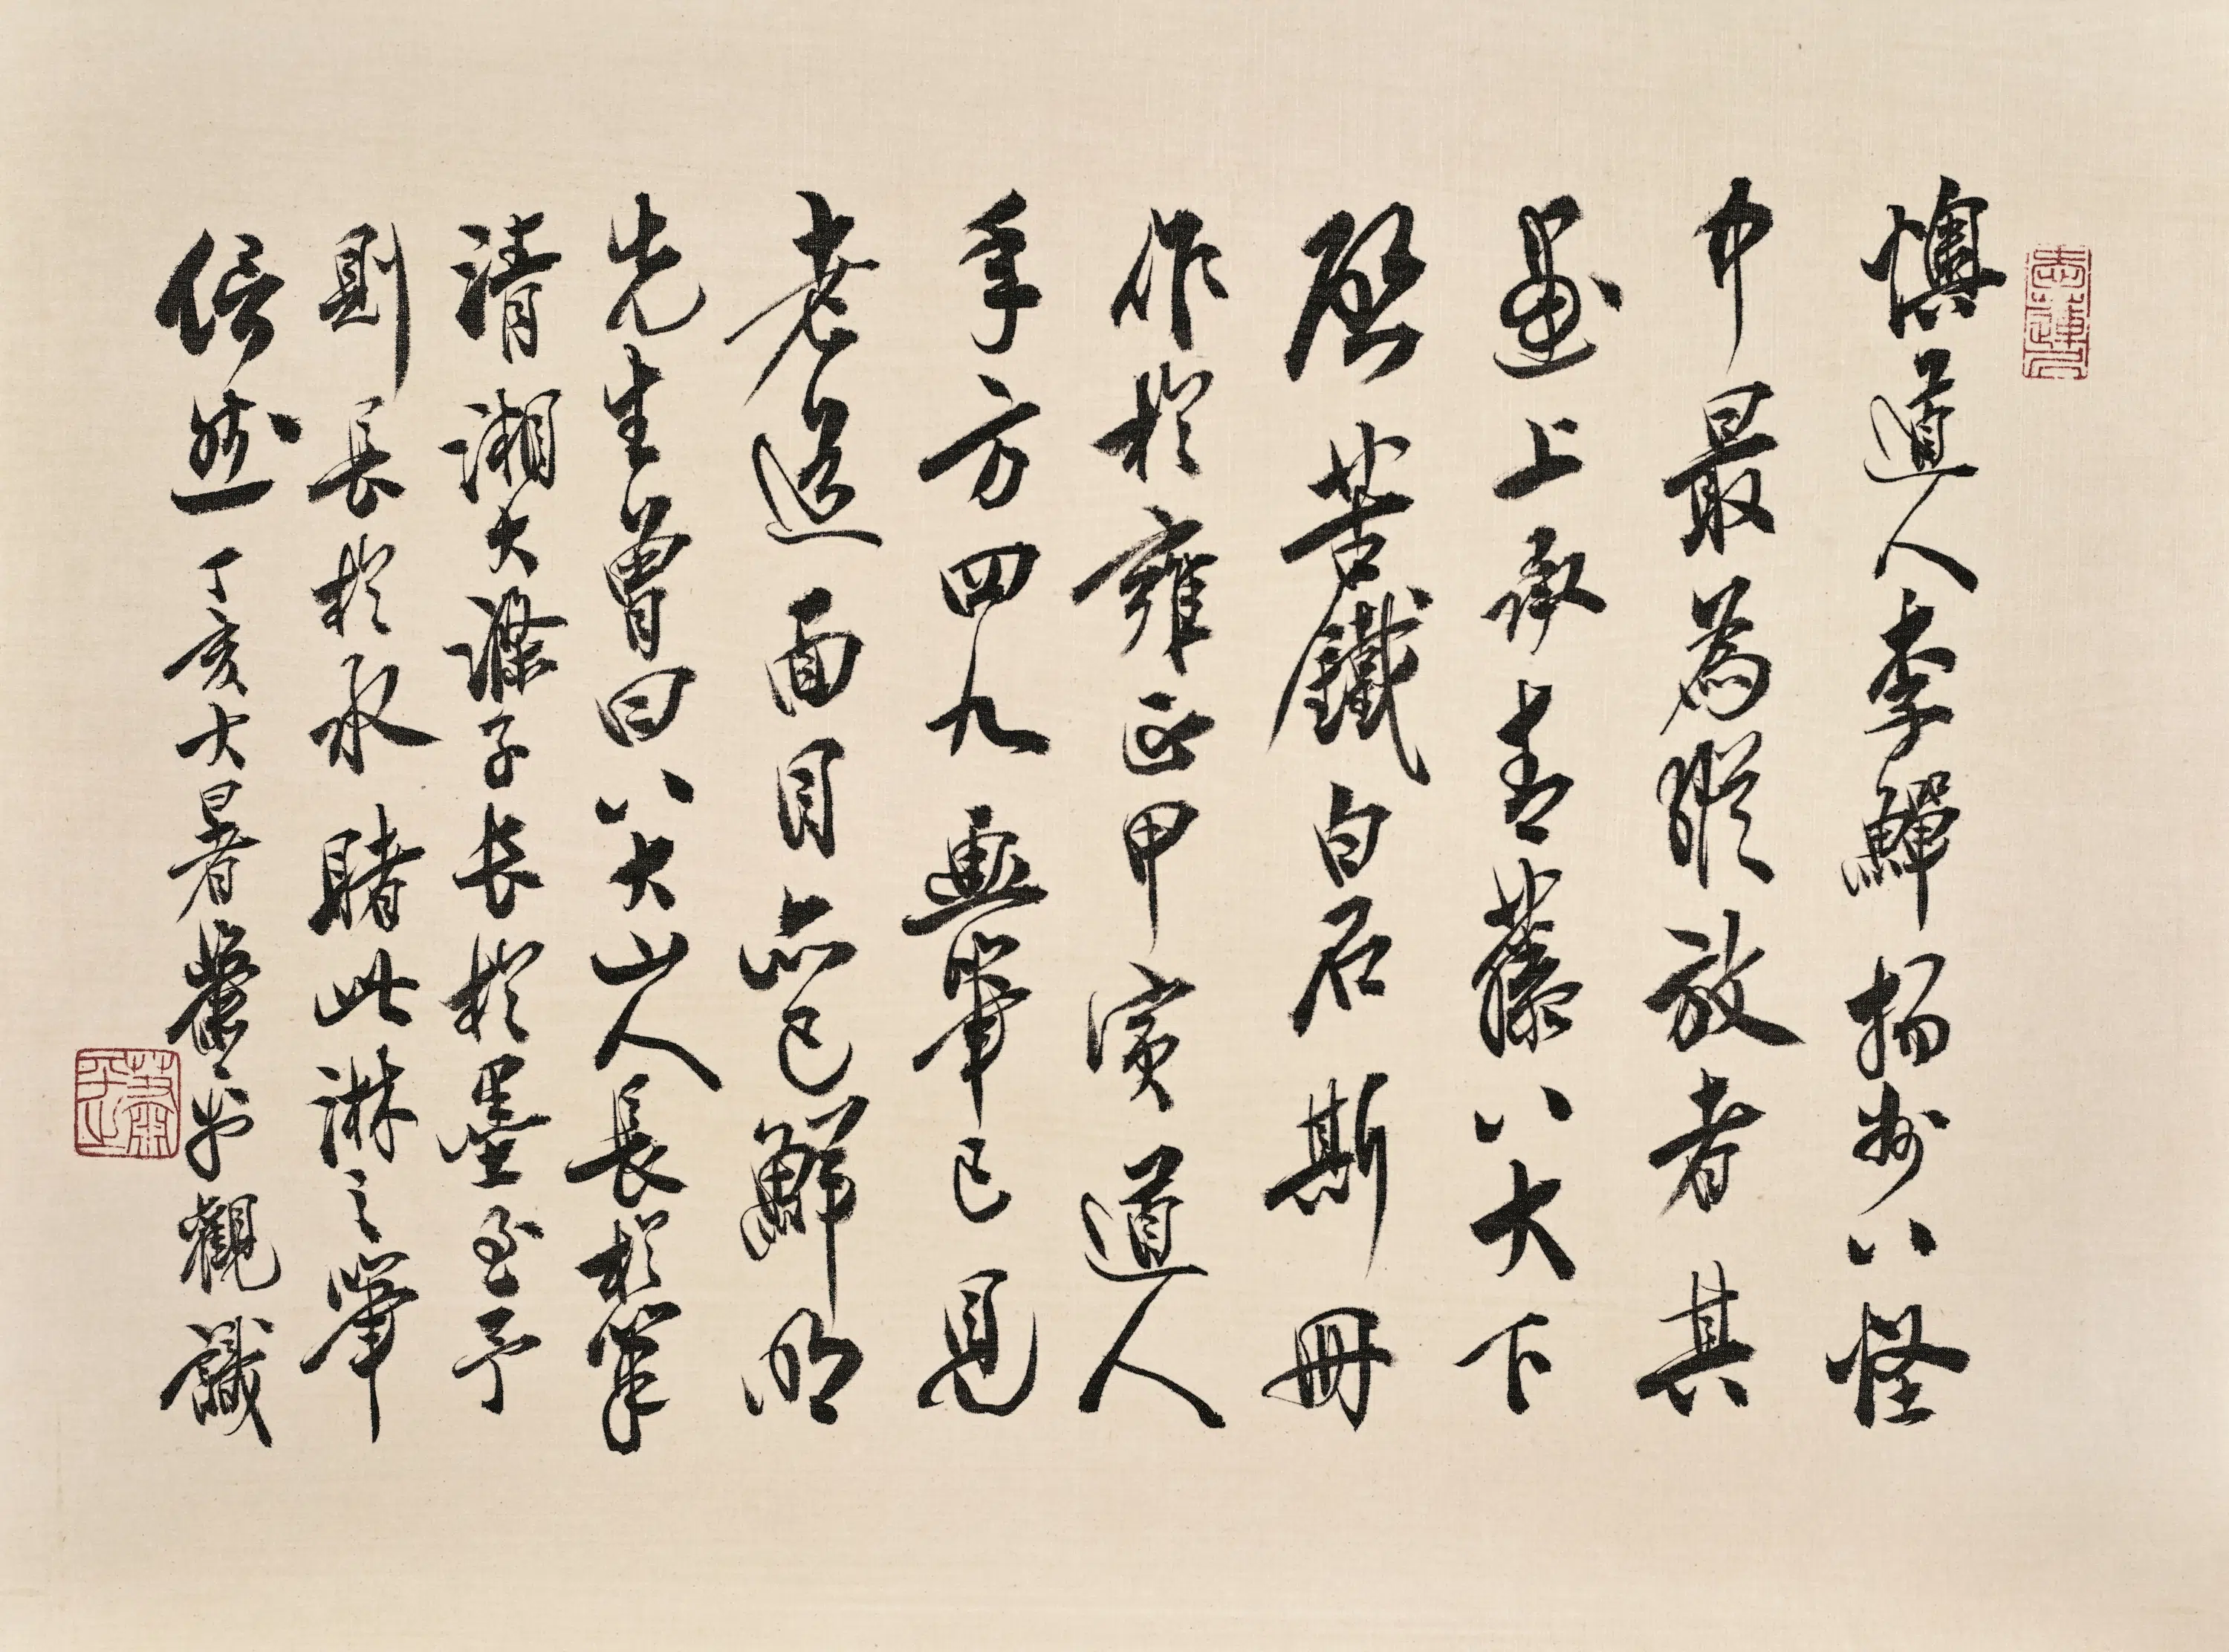 懊道人李觶揚州八怪
中最為縱放者其
畫上承青藤八大下
啟苦鐵白石斯冊
作於雍正甲寅道人
年方四九畫筆已見
老道面目亦已鮮明
先生曾曰八大山人長於筆
清湘大滌子長於墨至予
則長於水睹此淋之筆
信然丁亥大暑蕭平觀識
蕭平